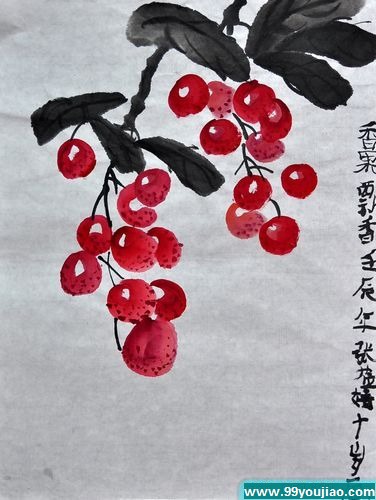 香果飘香壬辰年张十岁
www.99youjiao.com